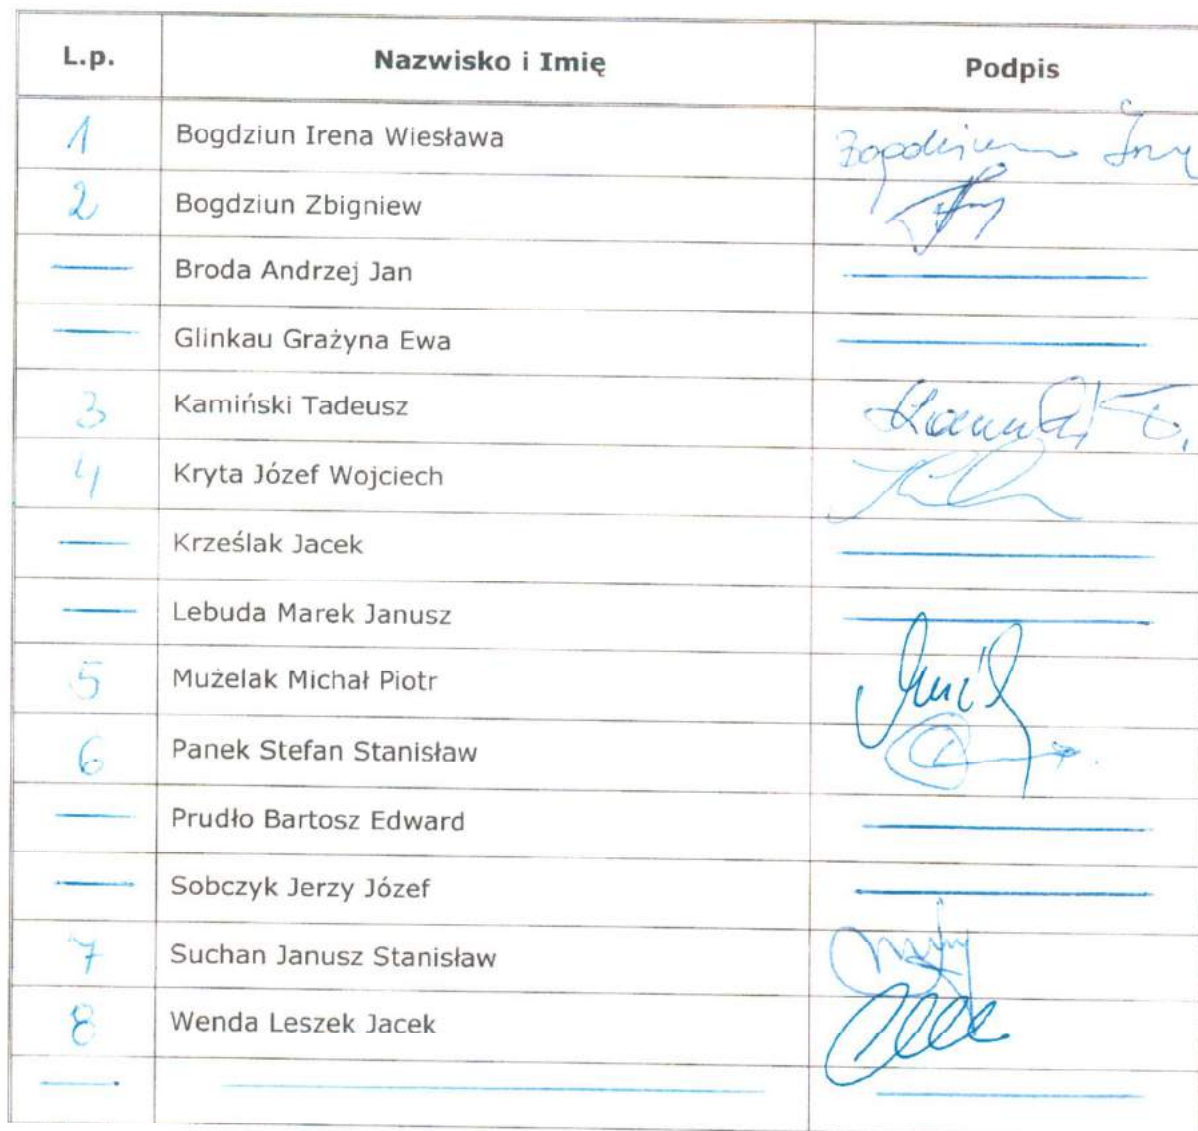 L.p. Nazwisko i Imię Podpis
1 Bogdziun Irena Wiesława Bogdziun
2 Bogdziun Zbigniew
Broda Andrzej Jan
Glinkau Grażyna Ewa
3 Kamiński Tadeusz
4 Kryta Józef Wojciech
Krześlak Jacek
Lebuda Marek Janusz
5 Mużelak Michał Piotr
6 Panek Stefan Stanisław
Prudło Bartosz Edward
Sobczyk Jerzy Józef
7 Suchan Janusz Stanisław
8 Wenda Leszek Jacek